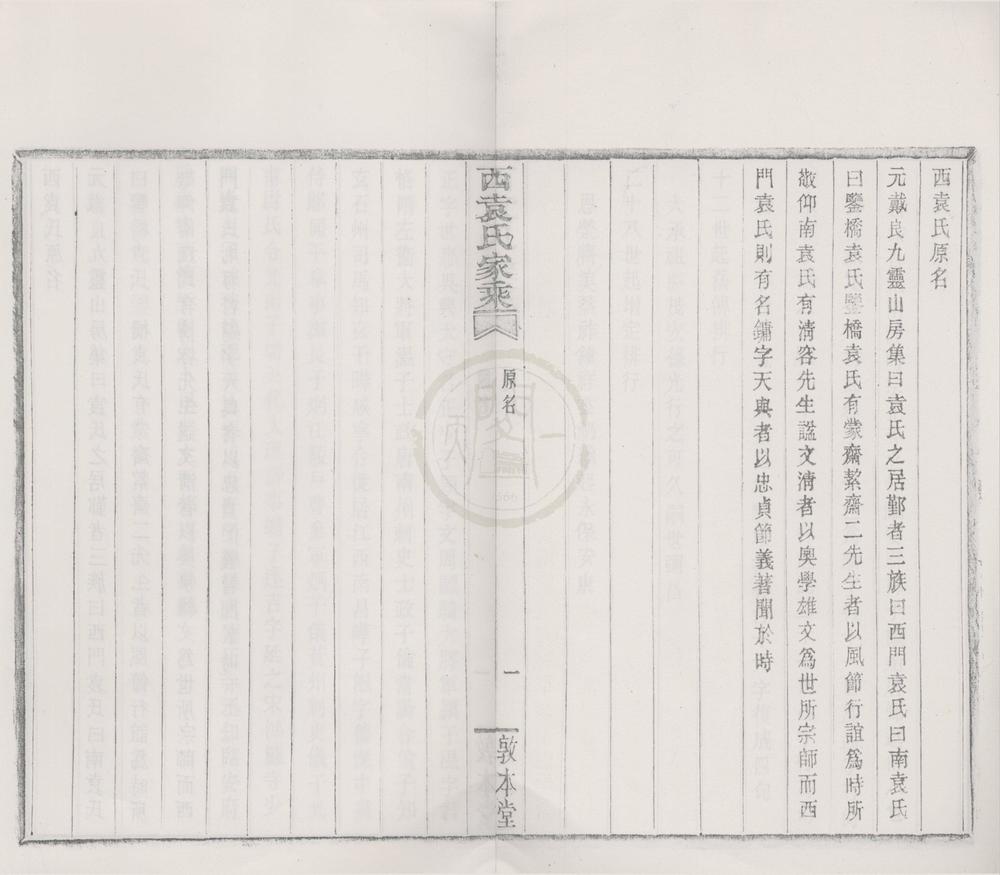 西袁氏原名
元戴良九靈山房集曰袁氏之居鄞者三族曰西門袁氏曰南袁氏
曰鑒橋袁氏鑒橋袁氏有蒙齋絜齋二先生者以風節行誼爲時所
敬仰南袁氏有淸容先生諡文淸者以奧學雄文爲世所宗師而西
門袁氏則有名鏞字天與者以忠貞節義著聞於時
西袁氏家乘
原名
一
敦本堂